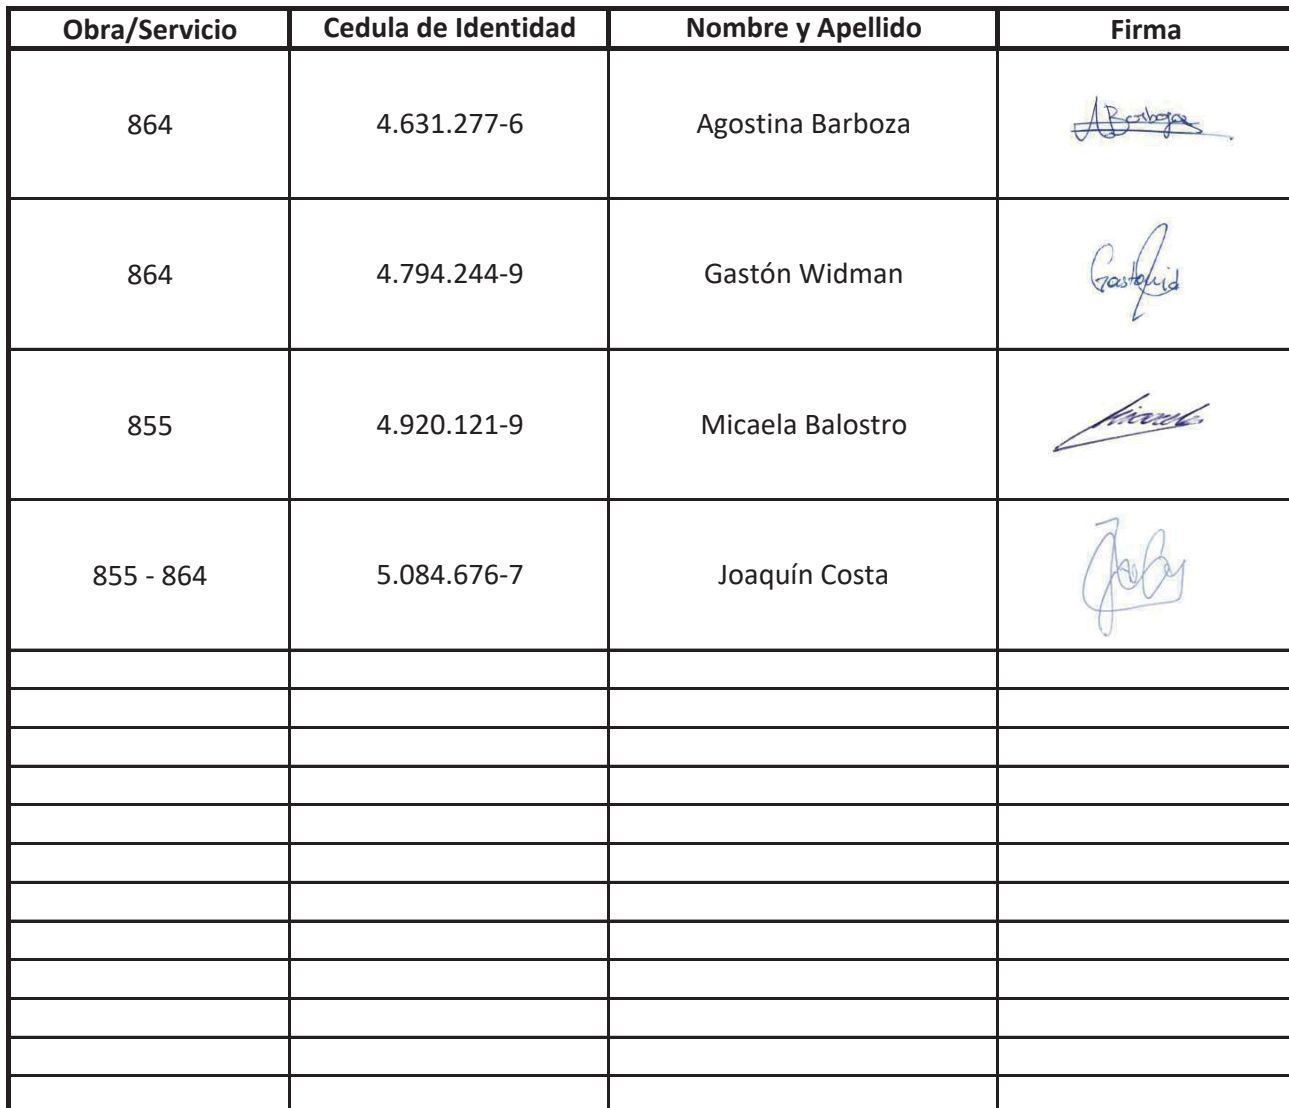 Obra/Servicio Cedula de Identidad Nombre y Apellido Firma
864 4.631.277-6 Agostina Barboza ABarboza
864 4.794.244-9 Gastón Widman
855 4.920.121-9 Micaela Balostro
855 - 864 5.084.676-7 Joaquín Costa